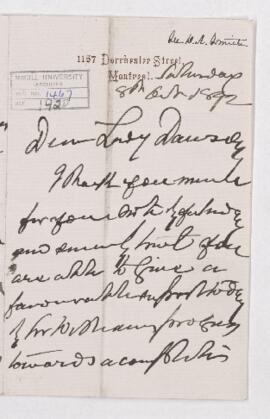 1157 Dorchester Street,
Montreal. Saturday
8th Oct 1892
McGILL UNIVERSITY
ARCHIVES
ACC. NO. 1467
REF.
Dear Lady Dawson,
I thank you much
for your note of
and trust you
are able to give a
favourable report today
of Sir William's progress
towards a complete